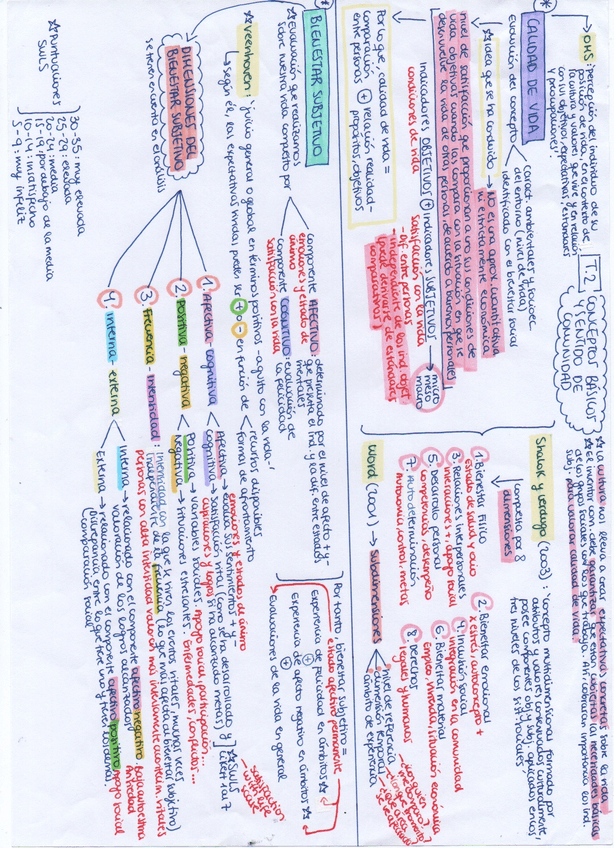 T.2 CONCEPTOS BÁSICOS
Y SENTIDO DE
COMUNIDAD
* CALIDAD DE VIDA
→ OMS: percepción del individuo de su
posición de vida, en el contexto de
la cultura y valores que vive y en relación
con sus objetivos, expectativas, estándares
y preocupaciones.
Evolución del concepto
Caract. ambientales y socioec.
del entorno (nivel de vida)
identificado con el bienestar social
☆ Idea que se ha concluido → No es una aprox. cuantitativa
ni estrictamente económica
nivel de satisfacción que proporcionan a uno sus condiciones de
vida objetivas cuando las compara con la situación en que se
desenvuelve la vida de otras personas de acuerdo a normas personales
Indicadores OBJETIVOS + Indicadores SUBJETIVOS → micro
meso
macro
condiciones de vida
satisfacción con la vida
- Dif. entre personas
- Independiente de los ind. objet
(puede derivarse de estándares
comparativos)
Por lo que, calidad de vida =
comparación + relación realidad-
entre personas propósitos, objetivos
☆ La cultura nos lleva a crear expectativas concretas sobre la vida
Shalok y Verdugo (2003): "concepto multidimensional formado por
atributos y valores consensuados culturalmente,
posee componentes obj y subj. aplicados en los
tres niveles de los sist. sociales
compuesto por 8
dimensiones
1. Bienestar físico
estado de salud y ocio
2. Bienestar emocional
× estrés, autoconcepto +
3. Relaciones interpersonales
interacciones + apoyo social
4. Inclusión social
integración en la comunidad
5. Desarrollo personal
competencias, desempeño
6. Bienestar material
Empleo, vivienda, situación económica
7. Autodeterminación
Autonomía, control, metas
8. Derechos
Legales y humanos
Word (2001) → subdimensiones
nivel de referencia
dimensión temporal
ámbito de experiencia
* BIENESTAR SUBJETIVO
☆ Evaluación que realizamos
sobre nuestra vida compuesto por
componente AFECTIVO: determinado por el nivel de afecto + y -
emociones y estado de
ánimo
que presenta el ind. y la dif. entre estados
mentales
componente COGNITIVO: evaluación de
satisfacción con la vida
la felicidad
☆ Veenhoven: "juicio general o global en términos positivos - a gusto con la vida."
→ según él, las expectativas vividas pueden ser + o - en función de
recursos disponibles
formas de afrontamiento
Por tanto, bienestar subjetivo =
estado afectivo permanente
Experiencia de felicidad en ámbitos ☆
+
Experiencia de afecto negativo en ámbitos ☆
+
Evaluaciones de la vida en general
DIMENSIONES DEL
BIENESTAR SUBJETIVO
se tienen en cuenta en el análisis
1. Afectiva-cognitiva
Afectiva → emociones y estados de ánimo
evalúa sus sentimientos + y -
Cognitiva → satisfacción vital (cómo se ha desarrollado y
si ha alcanzado metas)
aspiraciones y logros
☆ SWLS
Likert 1 a 7
Satisfaction
with life
scale
2. Positiva-negativa
Positiva → variables sociales. Apoyo social, participación...
Negativa → situaciones estresantes. Enfermedades, conflictos...
3. Frecuencia-intensidad: intensidad con la que se viven los eventos vitales, muchas veces
independiente de la frecuencia (lo que más afecta al bienestar subjetivo)
personas con alta intensidad valoran más intensamente acontecim. vitales
4. Interna-externa
Interna → relacionado con el componente afectivo negativo. Baja autoestima
valoración de los logros alcanzados. Ansiedad
Externa → relacionado con el componente afectivo positivo. Apoyo social
(discrepancia entre lo que tiene uno y tienen los demás)
comparación social
☆ Puntuaciones
SWLS
30-35: muy elevada
25-29: elevada
20-24: media
15-19: por debajo de la media
10-14: insatisfecho
5-9: muy infeliz